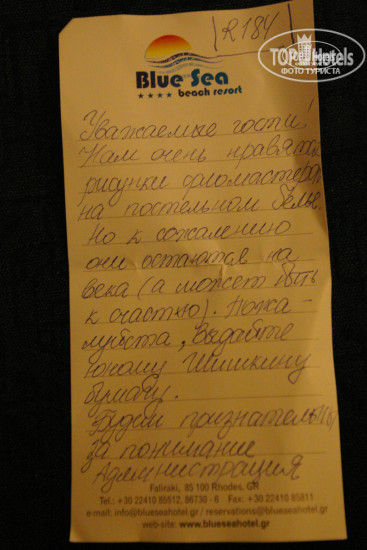 R184
TOPHotels
ФОТО ТУРИСТА
Blue Sea
★★★★ beach resort
Уважаемые гости!
Нам очень нравятся
рисунки фломастером
на постельном белье.
Но к сожалению
они остаются на
века (а может быть
к счастью). Пожа-
луйста, выдайте
юному Шишкину
бумагу.
Будем признательны
за понимание
Администрация
Faliraki, 85 100 Rhodes, GR
Tel.: +30 22410 85512, 86730 - 6 Fax: +30 22410 85811
e-mail: info@blueseahotel.gr / reservations@blueseahotel.gr
web-site: www.blueseahotel.gr